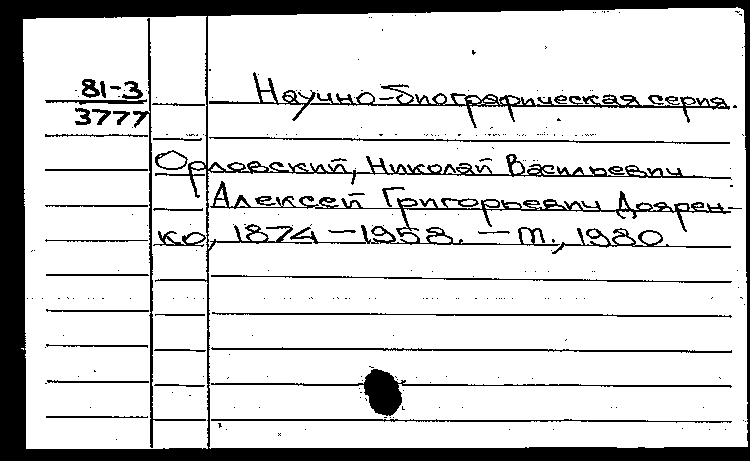 81-3
3777
Научно-биографическая серия.
Орловский, Николай Васильевич
Алексей Григорьевич Доярен-
ко, 1874 – 1958. – М., 1980.